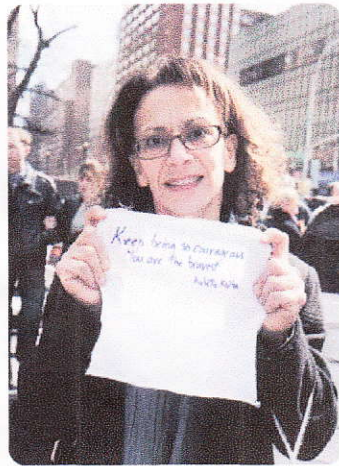 Keep being so courageous
You are the bravest